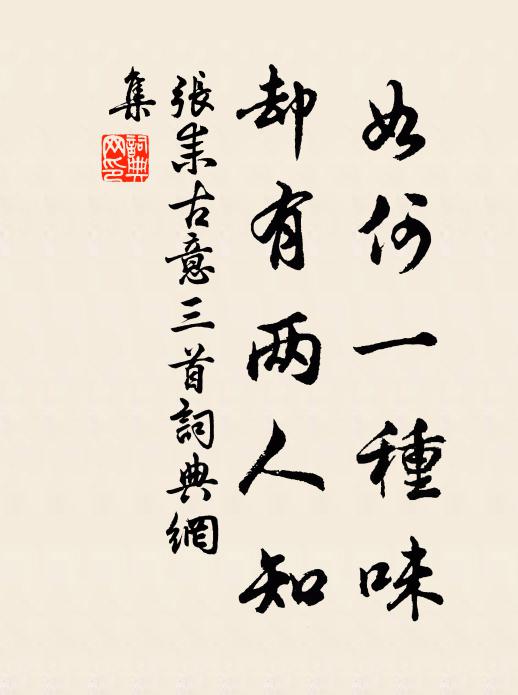 如何一種味
却有两人知
張耒古意三首詞典網
集
詞典網印